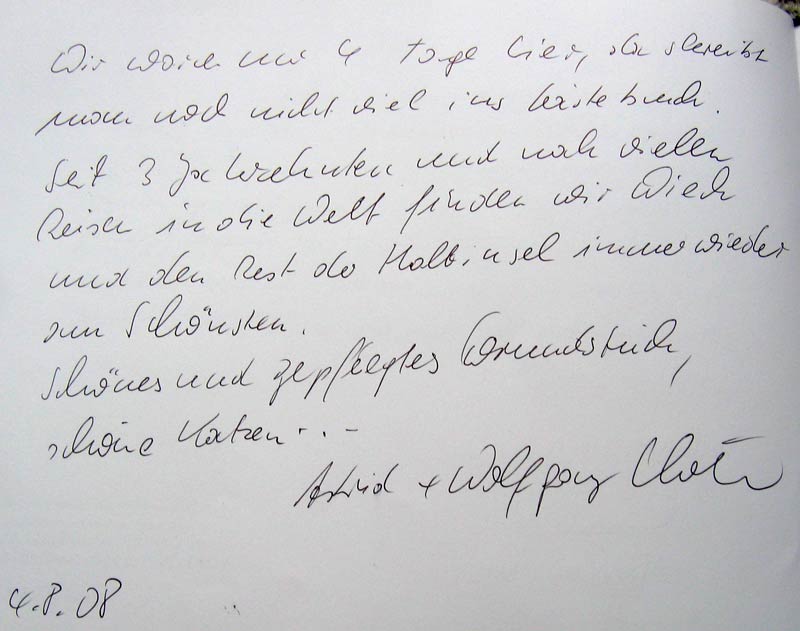 Wir waren nur 4 Tage hier, da schreibt
man noch nicht viel ins Gästebuch.
Seit 3 Jahrzehnten und nach vielen
Reisen in die Welt finden wir Wieck
und den Rest der Halbinsel immer wieder
am Schönsten.
Schönes und gepflegtes Grundstück,
schöne Katzen...-
Astrid + Wolfgang
4.8.08